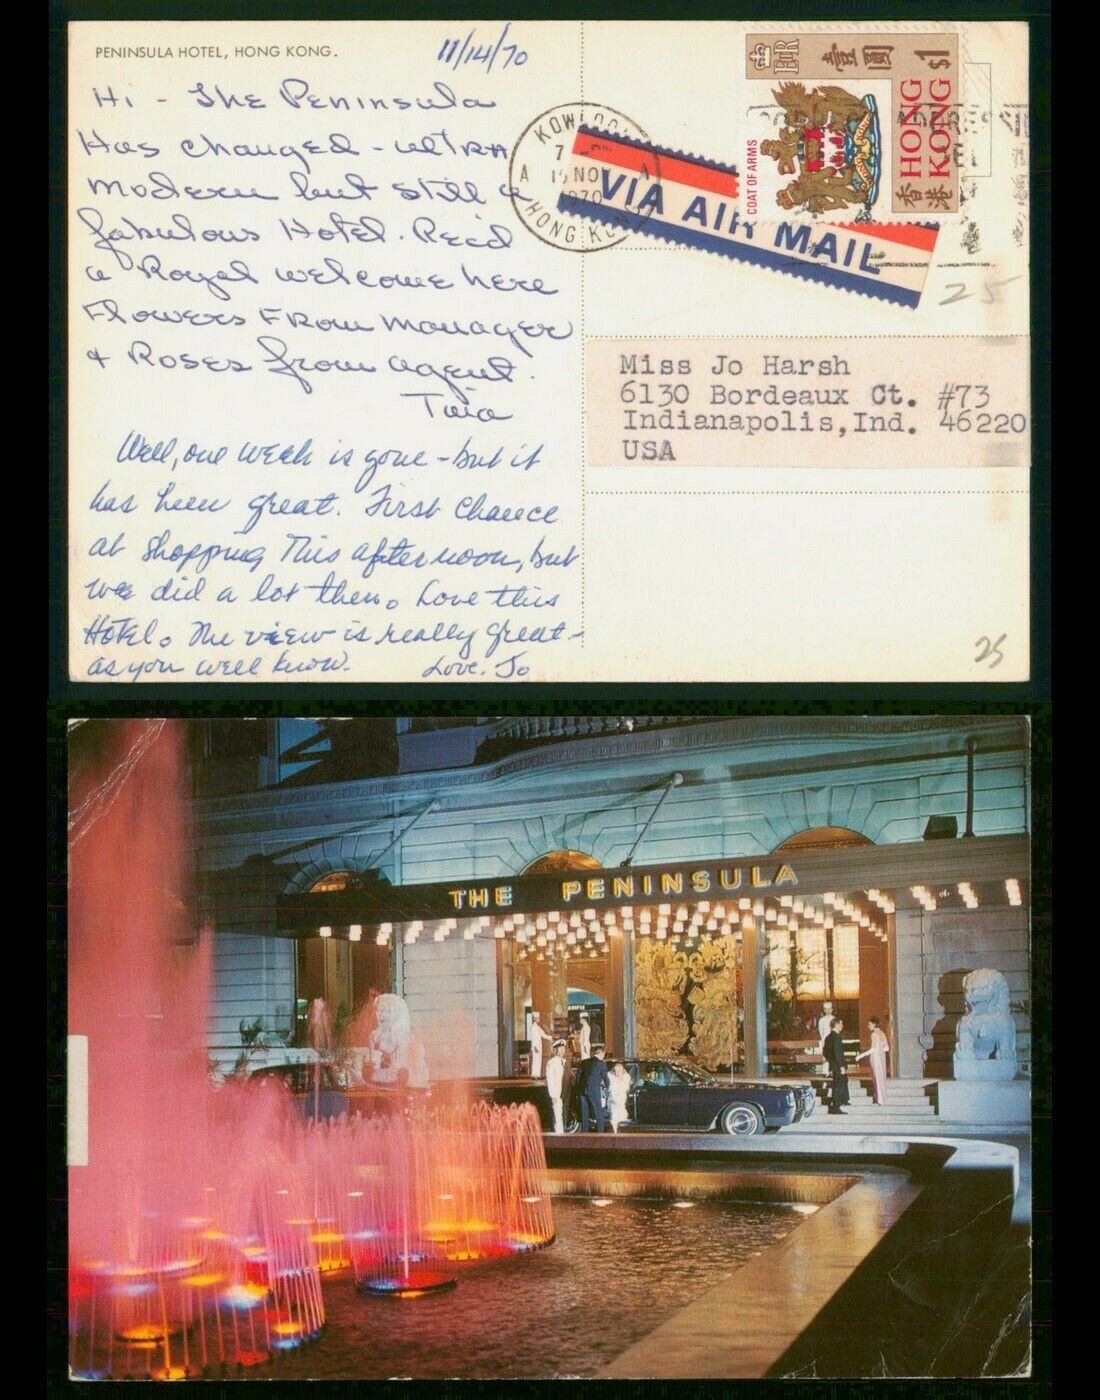 PENINSULA HOTEL, HONG KONG.
11/14/70
Hi - The Peninsula
Has changed - ultra
modern but still a
fabulous Hotel. Rec'd
a Royal welcome here
Flowers From Manager
& Roses from agent.
Well, one week is gone - but it
has been great. First chance
at shopping This afternoon, but
we did a lot then. Love this
Hotel. The view is really great -
as you well know. Love. Jo
KOWLOO
7
A A
NO
1970
HONG KO
VIA AIR MAIL
E II R
壹圓
HONG KONG $1
香港
COAT OF ARMS
25
Miss Jo Harsh
6130 Bordeaux Ct. #73
Indianapolis, Ind. 46220
USA
25
THE PENINSULA